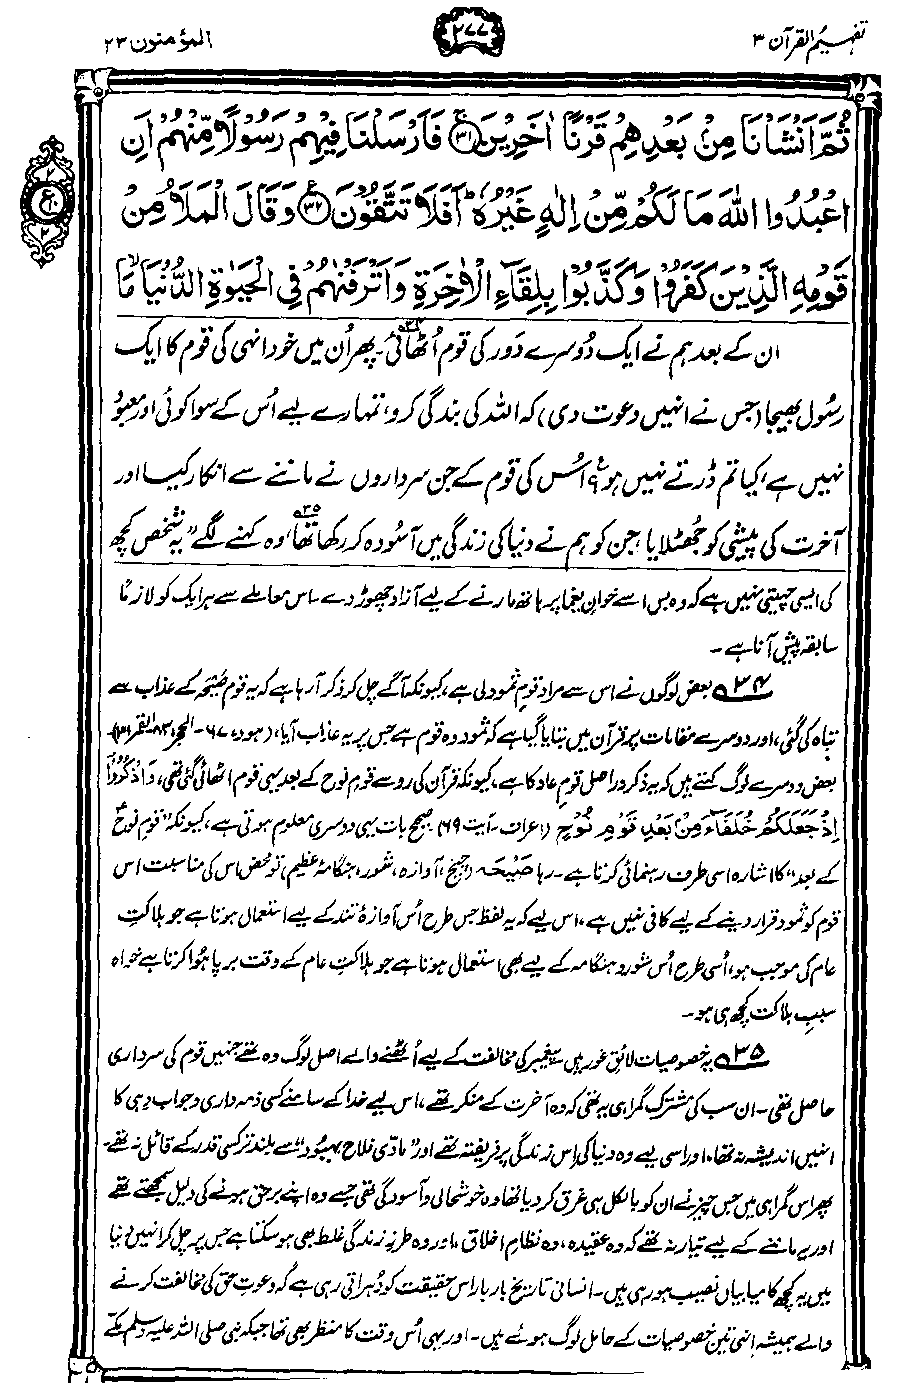 تفہیم القرآن ۳
۲۷۷
المؤمنون ۲۳
ثُمَّ اَنْشَاْنَا مِنْۢ بَعْدِهِمْ قَرْنًا اٰخَرِيْنَ ﴿۳۱﴾ فَاَرْسَلْنَا فِيْهِمْ رَسُوْلًا مِّنْهُمْ اَنِ
اعْبُدُوا اللّٰهَ مَا لَكُمْ مِّنْ اِلٰهٍ غَيْرُهٗ ؕ اَفَلَا تَتَّقُوْنَ ﴿۳۲﴾ وَقَالَ الْمَلَاُ مِنْ
قَوْمِهِ الَّذِيْنَ كَفَرُوْا وَكَذَّبُوْا بِلِقَآءِ الْاٰخِرَةِ وَاَتْرَفْنٰهُمْ فِي الْحَيٰوةِ الدُّنْيَا ۙ مَا
ان کے بعد ہم نے ایک دُوسرے دَور کی قوم اُٹھائی۳۴۔ پھر اُن میں خود انہی کی قوم کا ایک
رسُول بھیجا (جس نے انہیں دعوت دی) کہ اللہ کی بندگی کرو، تمہارے لیے اُس کے سوا کوئی اور معبُود
نہیں ہے، کیا تم ڈرتے نہیں ہو؟ اُس کی قوم کے جن سرداروں نے ماننے سے انکار کیا اور
آخرت کی پیشی کو جُھٹلایا، جن کو ہم نے دنیا کی زندگی میں آسُودہ کر رکھا تھا۳۵، وہ کہنے لگے ”یہ شخص کچھ
کی ایسی چہیتی نہیں ہے کہ وہ بس اسے خوانِ یغما پر ہاتھ مارنے کے لیے آزاد چھوڑ دے۔ اس معاملے سے ہر ایک کو لازمًا
سابقہ پیش آنا ہے۔
۳۴ بعض لوگوں نے اس سے مراد قومِ ثمود لی ہے، کیونکہ آگے چل کر ذکر آ رہا ہے کہ یہ قوم صَیْحَہ کے عذاب سے
تباہ کی گئی، اور دوسرے مقامات پر قرآن میں بتایا گیا ہے کہ ثمود وہ قوم ہے جس پر یہ عذاب آیا، (ہود، ۶۷۔ الحجر، ۸۳۔ القمر، ۳۱)۔
بعض دوسرے لوگ کہتے ہیں کہ یہ ذکر دراصل قومِ عاد کا ہے، کیونکہ قرآن کی رو سے قومِ نوح کے بعد یہی قوم اٹھائی گئی تھی، وَاذْكُرُوْٓا
اِذْ جَعَلَكُمْ خُلَفَآءَ مِنْۢ بَعْدِ قَوْمِ نُوْحٍ (اعراف۔ آیت ۶۹) صحیح بات یہی دوسری معلوم ہوتی ہے، کیونکہ ”قوم نوحؑ
کے بعد“ کا اشارہ اسی طرف رہنمائی کرتا ہے۔ رہا صَیْحَہ (چیخ، آوازہ، شور، ہنگامۂ عظیم) تو محض اس کی مناسبت اس
قوم کو ثمود قرار دینے کے لیے کافی نہیں ہے، اس لیے کہ یہ لفظ جس طرح اُس آوازۂ تند کے لیے استعمال ہوتا ہے جو ہلاکتِ
عام کی موجب ہو، اُسی طرح اُس شور و ہنگامہ کے لیے بھی استعمال ہوتا ہے جو ہلاکتِ عام کے وقت برپا ہُوا کرتا ہے خواہ
سببِ ہلاکت کچھ ہی ہو۔
۳۵ یہ خصوصیات لائقِ غور ہیں۔ پیغمبر کی مخالفت کے لیے اُٹھنے والے اصل لوگ وہ تھے جنہیں قوم کی سرداری
حاصل تھی۔ ان سب کی مشترک گمراہی یہ تھی کہ وہ آخرت کے منکر تھے، اس لیے خدا کے سامنے کسی ذمہ داری و جواب دہی کا
انہیں اندیشہ نہ تھا، اور اسی لیے وہ دنیا کی اِس زندگی پر فریفتہ تھے اور ”مادّی فلاح و بہبود“ سے بلند تر کسی قدر کے قائل نہ تھے۔
پھر اس گمراہی میں جس چیز نے ان کو بالکل ہی غرق کر دیا تھا وہ خوشحالی و آسودگی تھی جسے وہ اپنے برحق ہونے کی دلیل سمجھتے تھے
اور یہ ماننے کے لیے تیار نہ تھے کہ وہ عقیدہ، وہ نظامِ اخلاق، اور وہ طرزِ زندگی غلط بھی ہو سکتا ہے جس پر چل کر انہیں دنیا
میں یہ کچھ کامیابیاں نصیب ہو رہی ہیں۔ انسانی تاریخ بار بار اس حقیقت کو دُہراتی رہی ہے کہ دعوتِ حق کی مخالفت کرنے
والے ہمیشہ انہی تین خصوصیات کے حامل لوگ ہوئے ہیں۔ اور یہی اُس وقت کا منظر بھی تھا جبکہ نبی صلی اللہ علیہ وسلم مکّے